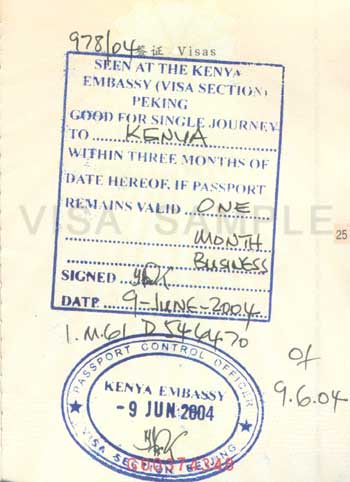 978/04 签证 Visas
SEEN AT THE KENYA
EMBASSY (VISA SECTION)
PEKING
GOOD FOR SINGLE JOURNEY
TO ...... KENYA
WITHIN THREE MONTHS OF
DATE HEREOF. IF PASSPORT
REMAINS VALID ... ONE
MONTH
BUSINESS
VISA SAMPLE
25
SIGNED
DATE 9-JUNE-2004
1.M.61 D 546470
of
9.6.04
PASSPORT CONTROL OFFICER
KENYA EMBASSY
- 9 JUN 2004
VISA SECTION BEIJING